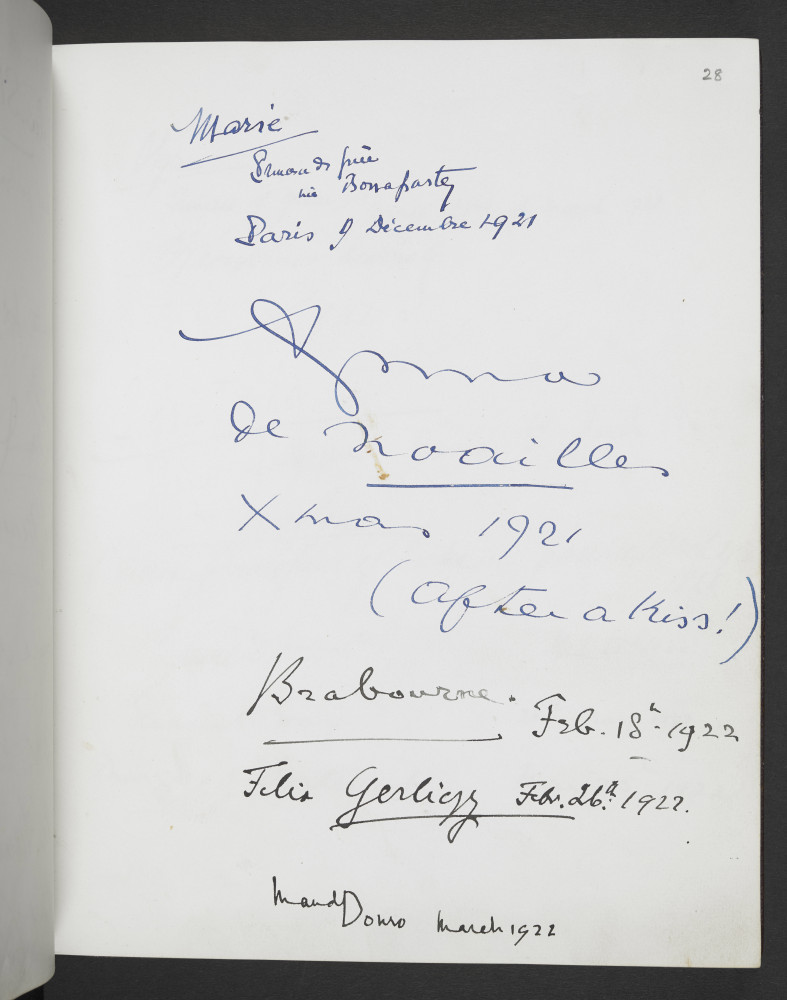 28
Marie
née Bonaparte
Paris 9 Décembre 1921
Anna
de Noailles
Xmas 1921
(after a kiss!)
Brabourne. Feb. 18th 1922
Felix Febr. 26th. 1922.
Maud March 1922